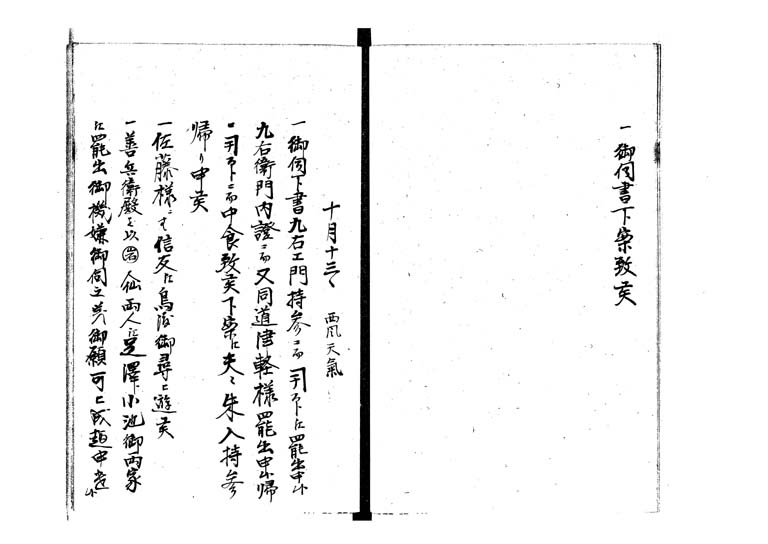 一御伺書下案致候
十月十三日 西風天氣
一御伺下書九右エ門持参ニ而 罷出申候
九右衛門内證ニ而又同道津軽様罷出申候帰
ニ而中食致候下案ニ夫々朱入持参
帰り申候
一佐藤様ニも信友 御尋被遊候
一善兵衛殿を以 人仙両人 足澤小池御両家
江罷出御機嫌御伺之 御願可被成趣申遣候